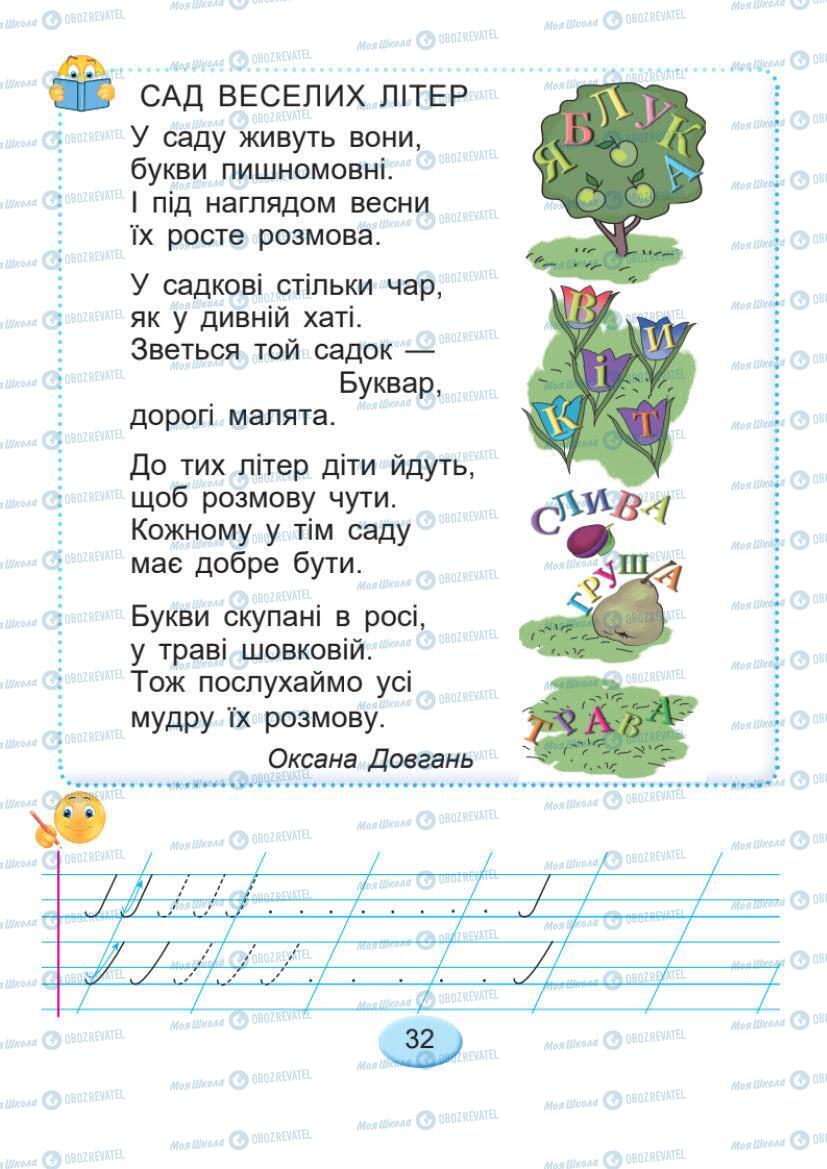 САД ВЕСЕЛИХ ЛІТЕР
У саду живуть вони,
букви пишномовні.
І під наглядом весни
їх росте розмова.
У садкові стільки чар,
як у дивній хаті.
Зветься той садок —
Буквар,
дорогі малята.
До тих літер діти йдуть,
щоб розмову чути.
Кожному у тім саду
має добре бути.
Букви скупані в росі,
у траві шовковій.
Тож послухаймо усі
мудру їх розмову.
Оксана Довгань
ЯБЛУКА
КВІТИ
СЛИВА
ГРУША
ТРАВА
32
Моя Школа OBOZREVATEL